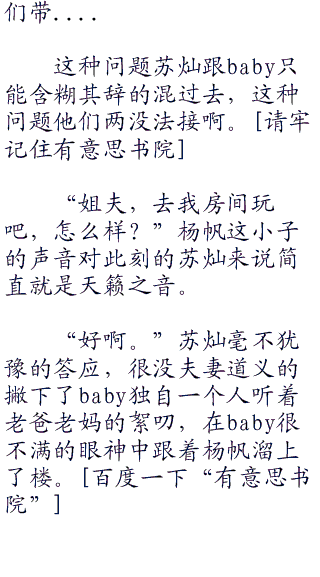 们带....
这种问题苏灿跟baby只
能含糊其辞的混过去，这种
问题他们两没法接啊。[请牢
记住有意思书院]
“姐夫，去我房间玩
吧，怎么样？”杨帆这小子
的声音对此刻的苏灿来说简
直就是天籁之音。
“好啊。”苏灿毫不犹
豫的答应，很没夫妻道义的
撇下了baby独自一个人听着
老爸老妈的絮叨，在baby很
不满的眼神中跟着杨帆溜上
了楼。[百度一下“有意思书
院”]